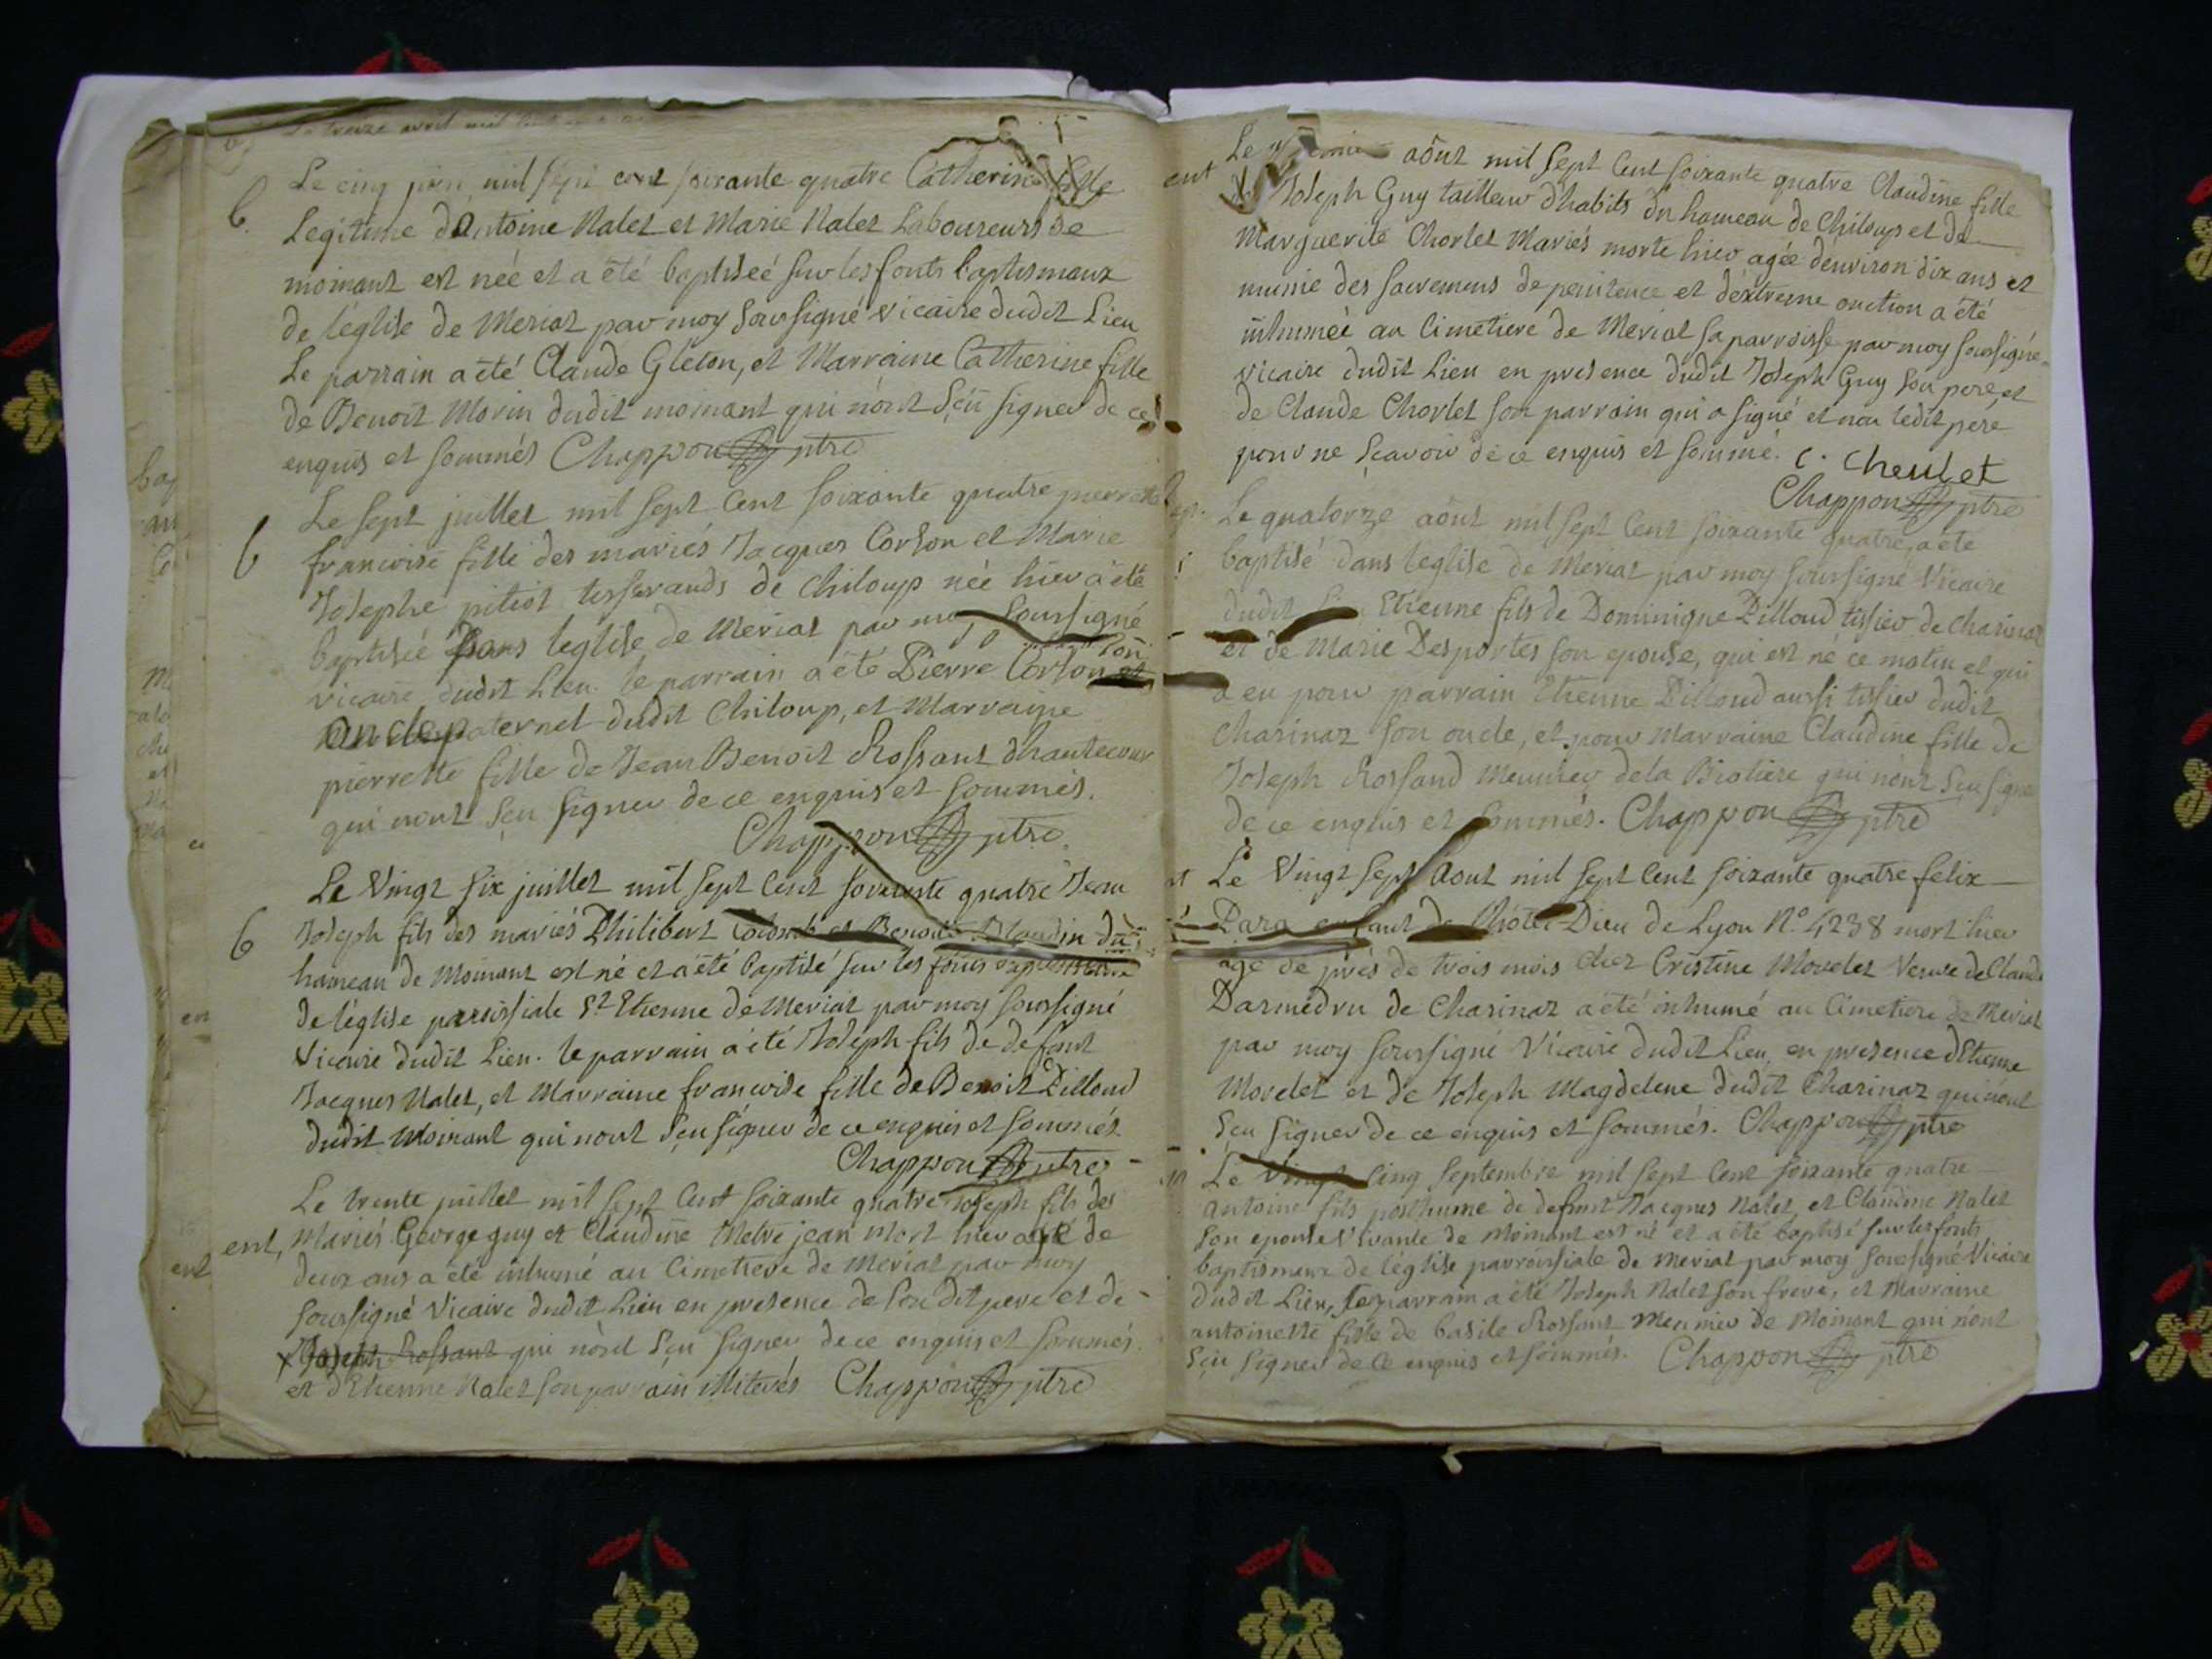 Le cinq juin mil sept cent soixante quatre Catherine fille
b.
Legitime d'Antoine Nalet et Marie Nalet Laboureurs de
moinant est née et a été baptiseé sur les fonts baptismaux
de l'église de Meriat par moy soussigné vicaire dudit Lieu
Le parrain a été Claude Gleton, et Marraine Catherine fille
de Benoit Morin dudit moinant qui n'ont sçu signer de ce
enquis et sommés Chappon ptre
Le sept juillet mil sept cent soixante quatre pierrette
b
francoise fille des mariés Jacques Corton et Marie
Josephe pitiot tisserands de Chiloup née hier a été
baptisée dans l'eglise de Meriat par moy soussigné
vicaire dudit Lieu. le parrain a été Pierre Corton son
oncle paternel dudit Chiloup, et Marraine
pierrette fille de Jean Benoit Rossant d'hautecour
qui n'ont sçu signer de ce enquis et sommés.
Chappon ptre
Le Vingt six juillet mil sept cent soixante quatre Jean
b
Joseph fils des mariés Philibert et Benoite Blondin du
hameau de Moinant est né et a été baptisé sur les fonts baptismaux
de l'église parroissiale St Etienne de Meriat par moy soussigné
Vicaire dudit Lieu. le parrain a été Joseph fils de defunt
Jacques Nalet, et Marraine francoise fille de Benoit Pilloud
dudit Moinant qui n'ont sçu signer de ce enquis et sommés
Chappon ptre
Le trente juillet mil sept cent soixante quatre Joseph fils des
ent, Mariés George guy et Claudine jean mort hier agé de
deux ans a été inhumé au Cimetiere de Meriat par moy
soussigné Vicaire dudit Lieu en presence de son dit pere et de
x Joseph Rossant qui n'ont sçu signer de ce enquis et sommés.
et d'Etienne Nalet son parrain illiterés Chappon ptre
Le aôut mil sept cent soixante quatre Claudine fille
ent
de Joseph Guy tailleur d'habits du hameau de Chiloup et de
Marguerite Chorlet Mariés morte hier agée d'environ dix ans et
munie des sacremens de penitence et d'extreme onction a été
inhumeé au Cimetiere de Meriat sa parroisse par moy soussigné
vicaire dudit Lieu en presence dudit Joseph Guy son pere, et
de Claude Chorlet son parrain qui a signé et non ledit pere
pour ne sçavoir de ce enquis et sommé. C. Cheulet
Chappon ptre
Le quatorze aôut mil sept cent soixante quatre, a été
baptisé dans l'eglise de Meriat par moy soussigné Vicaire
dudit Etienne fils de Dominique Pilloud tissier de Charinaz
et de Marie Desportes son epouse, qui est né ce matin et qui
a eu pour parrain Etienne Pilloud aussi tissier dudit
Charinaz son oncle, et pour Marraine Claudine fille de
Joseph Rossand Meunier de la qui n'ont sçu signe
de ce enquis et sommés. Chappon ptre
Le Vingt sept Aout mil sept cent soixante quatre felix
Para enfant de l'hôtel-Dieu de Lyon N° 4238 mort hier
agé de près de trois mois chez Cristine Morelet Veuve de Claude
Darmedru de Charinaz a été inhumé au Cimetiere de Meriat
par moy soussigné Vicaire dudit Lieu, en presence d'Etienne
Morelet et de Joseph Magdelene dudit Charinaz qui n'ont
sçu signer de ce enquis et sommés. Chappon ptre
Le Vingt cinq Septembre mil sept cent soixante quatre
antoine fils posthume de defunt Jacques Nalet, et Claudine Nalet
son epouse vivante de Moinant est né et a été baptisé sur les fonts
baptismaux de l'église parroissiale de Meriat par moy soussigné Vicaire
dudit Lieu, le parrain a été Joseph Nalet son frere, et Marraine
antoinette fille de basile Rossant Meunier de Moinant qui n'ont
sçu signer de ce enquis et sommés. Chappon ptre